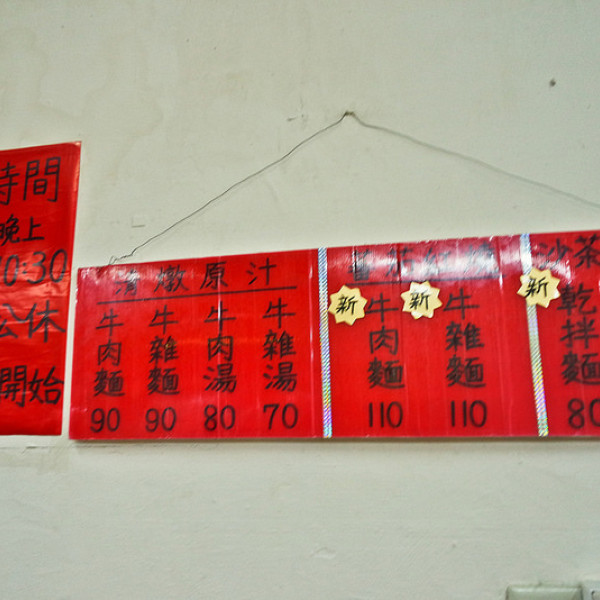 時間
晚上
10:30
公休
開始
清燉原汁
牛肉麵 90
牛雜麵 90
牛肉湯 80
牛雜湯 70
新
牛肉麵 110
新
牛雜麵 110
新
沙茶
乾拌麵 80